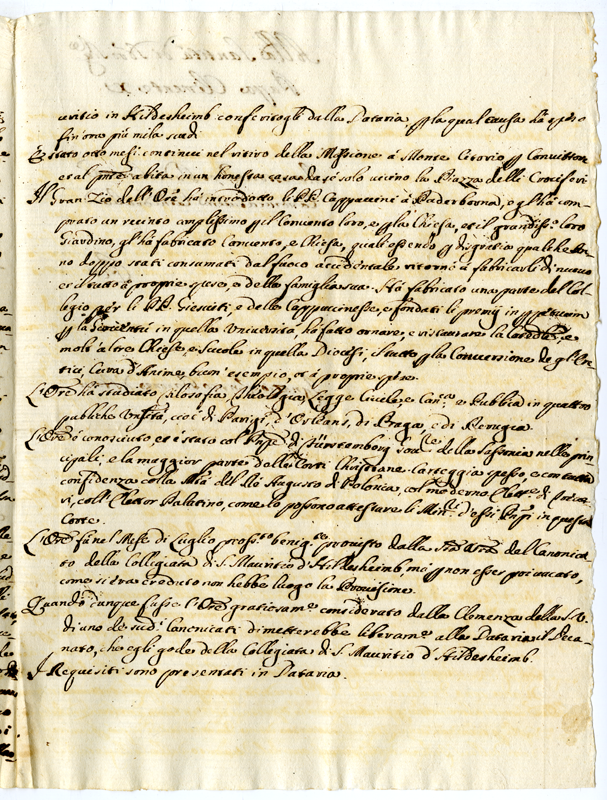 in Hildesheimb conferitogli dalla Dataria, per la qual causa hà speso
sin ora più mila scudi
È stato otto mesi continui nel ritiro della Missione à Monte Citorio per Convittore
et al pnte abita in un honesta casa da se solo vicino la Piazza delli Crociferi
Il Gran Zio dell' Ore hà introdotto li PP. Cappuccini à Paderbonna, e gl'hà com-
prato un recinto amplissimo per il Convento loro, e per la Chiesa, et il grandiss.o loro
Giardino, gl'hà fabricato Convento, e Chiesa, quali essendo per disgratia qualche An-
no doppo stati consumati dal fuoco accidentale ritornò à fabricarli di nuovo
et il tutto à proprie spese, e della famiglia sua. Hà fabricato una parte del Col-
legio per li PP. Giesuiti, e delle Cappuccinesse, e fondati li premij in perpetuum
per la Gioventù in quella Università, hà fatto ornare, e ristaurare la Cathedrale, e
molt'altre Chiese, e Scuole in quella Diocesi, il tutto per la Conversione de gl'Ere-
tici, Cura d'Anime, buon'esempio, et à proprie spese.
L'Ore hà studiato Filosofia, Theologia, Legge Civile, e Can.ca e Publica in quattro
publiche Unstà, cioè di Parigi, d'Orleans, di Praga, e di Perugia
L'Ore è conosciuto, et è stato col Pnpe di Fürstemberg della Sassonia nelle prin-
cipali, e la maggior parte delle Corti Christiane. Carteggia spesso, e con
confidenza colla Mtà del Rè Augusto di Polonia, col moderno
coll'Elettor Palatino, come lo possono attestare li Min.ri d'essi Pnpi in questa
Corte.
L'Ore fù nel Mese di Luglio pross.o benig.te provisto dalla del Canonica-
to della Collegiata di S. Mauritio d'Hildesheimb, mà per non esser poi vacato,
come si era creduto non hebbe luogo la Provisione.
Quando dunque fusse l'Ore gratiosam.e considerato dalla Clemenza della S.V.
di uno de sud.i Canonicati dimetterebbe liberam.e alla Dataria il Deca-
nato, che egli gode della Collegiata di S. Mauritio d'Hildesheimb.
I Requisiti sono presentati in Dataria.